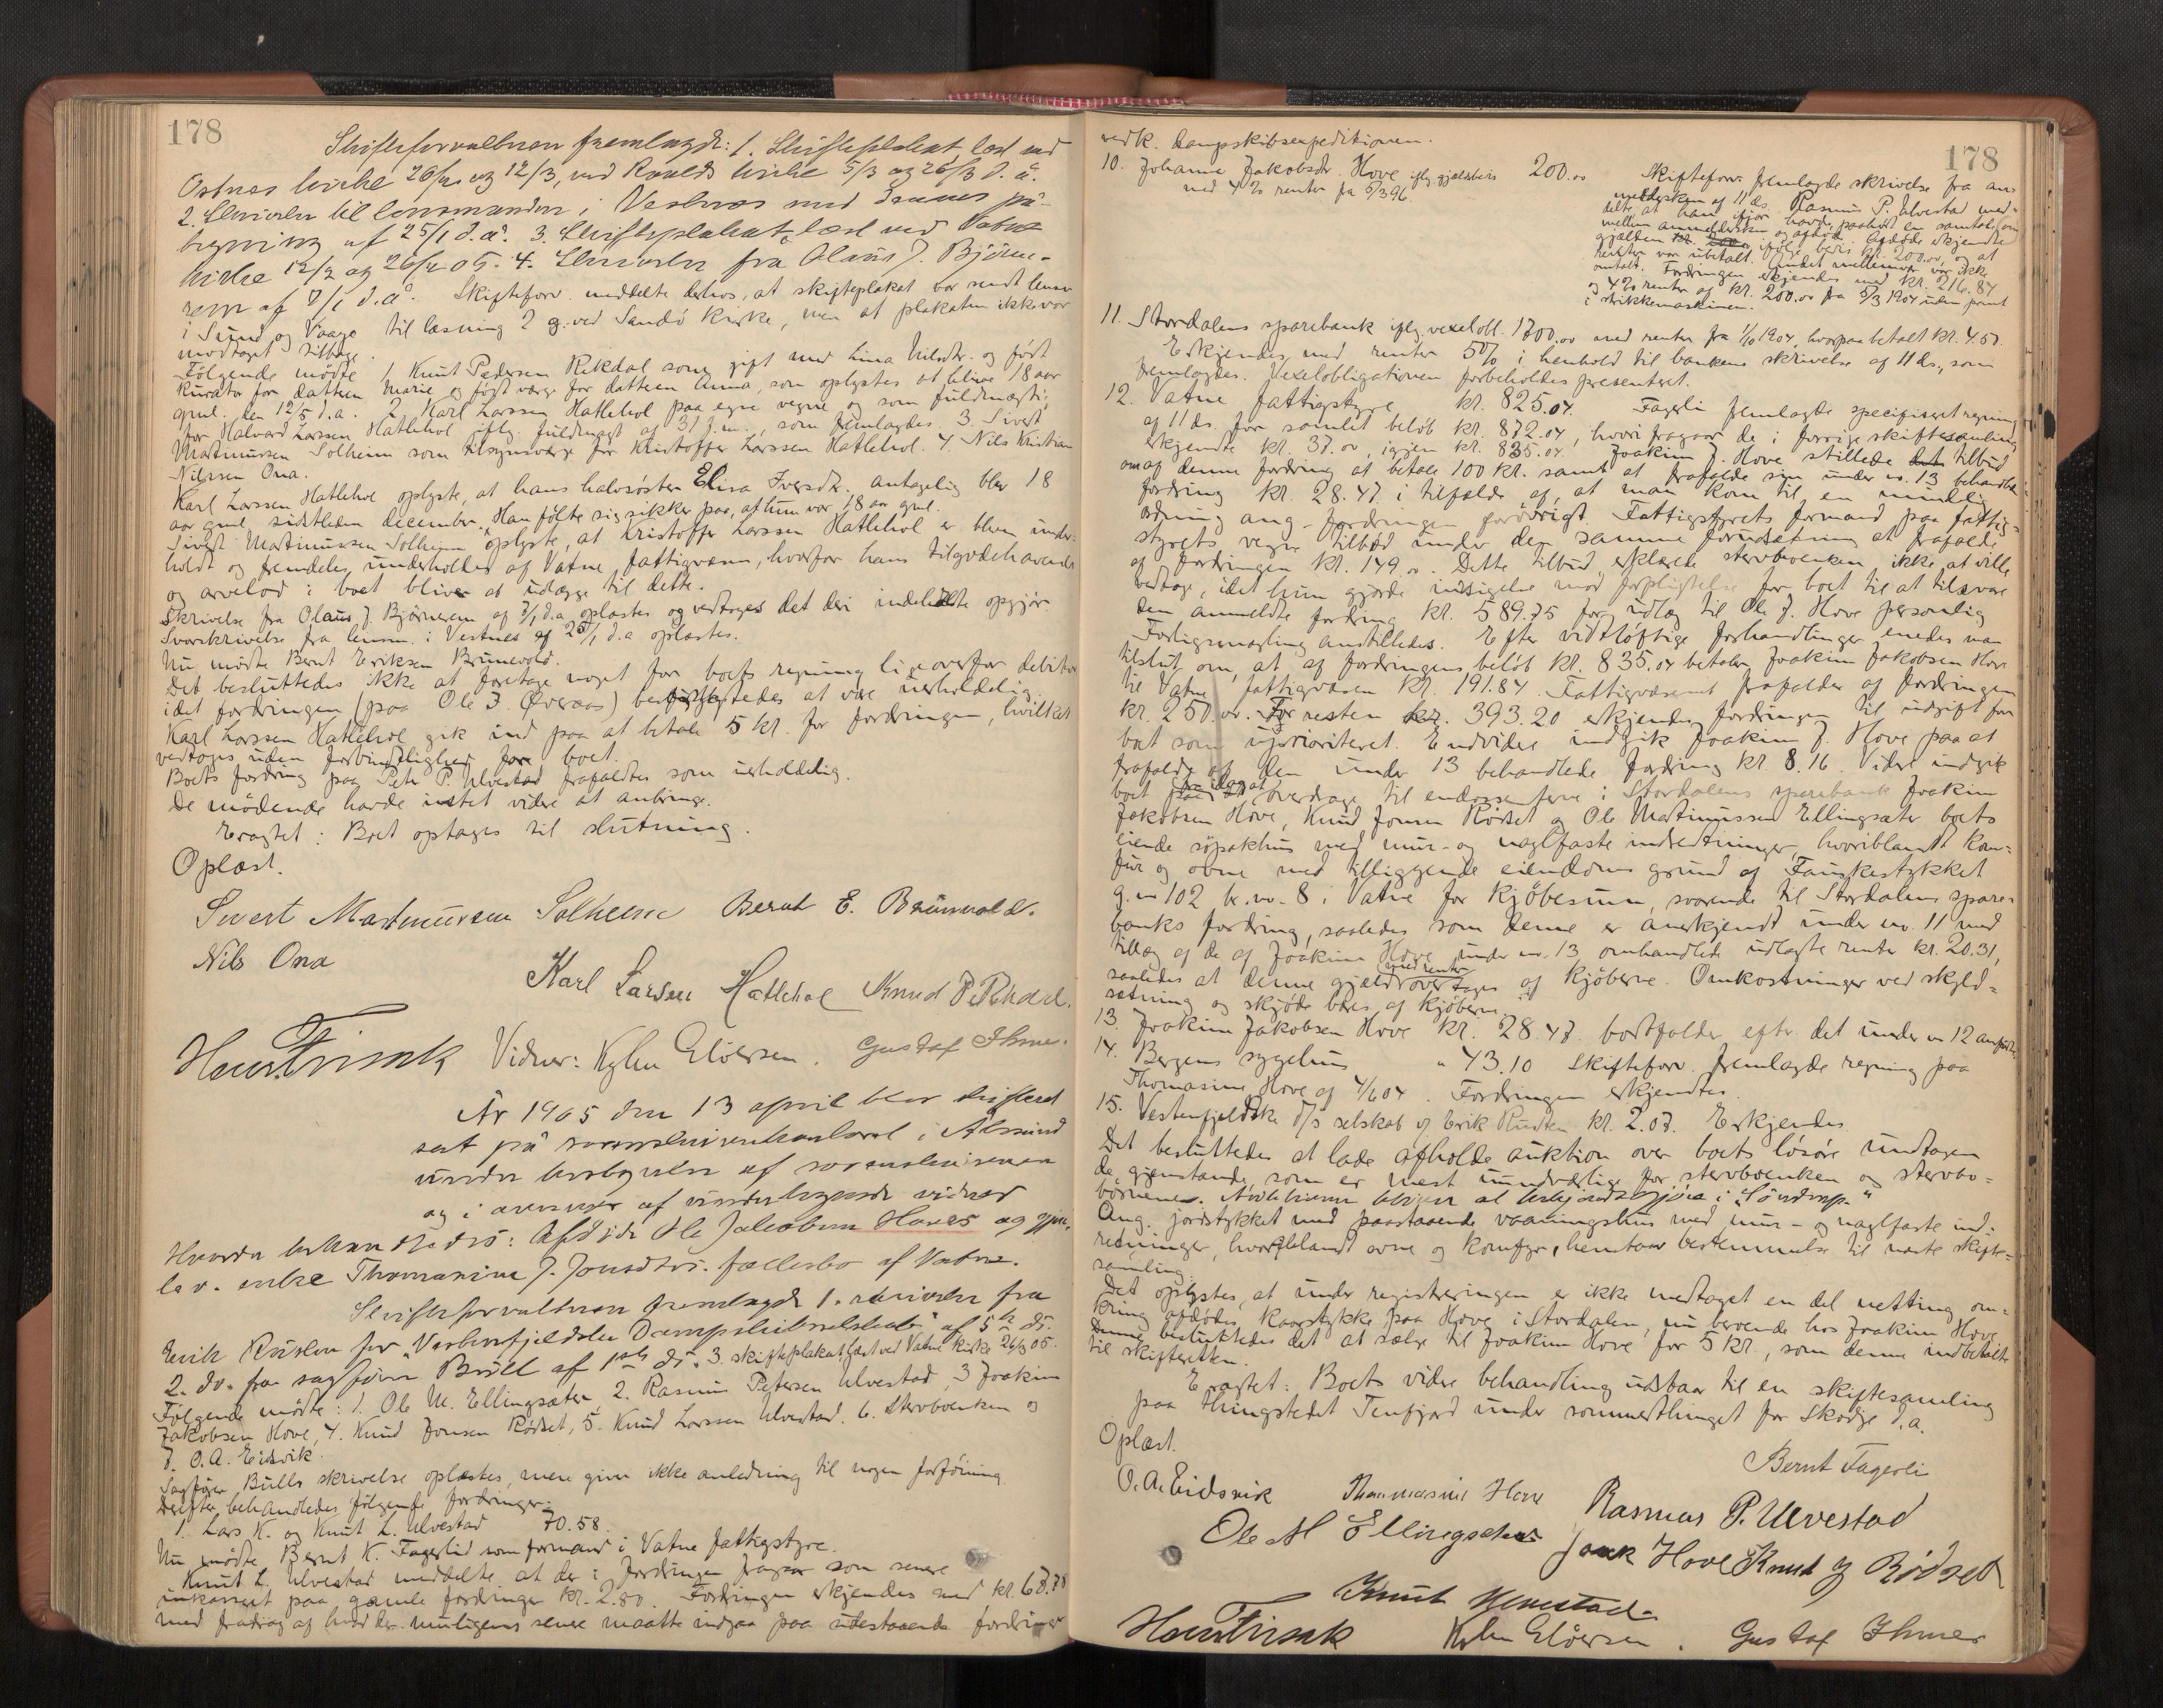 178
Skifteforvalteren fremlagde: 1. Skifteplakat, læst ved
Østnes kirke 26/2 og 12/3, ved Roalds kirke 5/3 og 26/3 d.å.
2. Skrivelse til lensmanden i Vestnes med dennes på-
tegning af 25/1 d.å. 3. Skifteplakat læst ved Vatne
kirke 12/2 og 26/2 05. 4. Skrivelse fra Olaus J. Björne-
rem af 7/1 d.å. Skifteforv. meddelte derhos, at skifteplakat var sendt lensm
i Sund og Vaage til læsning 2 g. ved Sandö kirke, men at plakaten ikke var
modtaget tilbage.
Følgende mødte 1 Knut Pedersen Rekdal som gift med Lina Nilsdtr. og født
kurator for datteren Marie og født værge for datteren Anna, som oplystes at blive 18 aar
gml. den 12/5 d.a. 2. Karl Larssen Hatlehol paa egne vegne og som fuldmægtig
for Halvard Larssen Hatlehol iflg. fuldmagt af 31 f.m., som fremlagdes. 3. Sivert
Martinussen Solheim som tilsynsværge for Kristoffer Larssen Hatlehol. 4 Nils Kristian
Nilssen Ona.
Karl Larssen Hatlehol oplyste, at hans halvsøster Elisa Iversdtr. antagelig blev 18
aar gml. sidstleden december. Han følte sig sikker paa, at hun var 18 aar gml.
Sivert Martinussen Solheim oplyste, at Kristoffer Larssen Hatlehol er bleven under-
holdt og fremdeles underholdes af Vatne fattigvæsen, hvorfor hans tilgodehavende
og arvelod i boet bliver at udlægge til dette.
Skrivelse fra Olaus J. Bjørnerem af 7/1 d.a oplæstes og vedtoges det deri indeholdte opgjør
Svarskrivelse fra lensm. i Vestnes af 25/1 d.a oplæstes.
Nu mødte Bernt Eriksen Brunevold.
Det besluttedes ikke at foretage noget for boets regning ligeoverfor debitor
idet fordringen (paa Ole J. Øveraas) befrygtedes at være uerholdelig.
Karl Larssen Hatlehol gik ind paa at betale 5 kr. for fordringen, hvilket
vedtoges uden forbindtlighed for boet.
Boets fordring paa Peter P. Ulvestad frafaldtes som uerholdelig.
De mødende havde intet videre at anbringe.
Eragtet: Boet optages til slutning.
Oplæst.
Sivert Martinussen Solheim Bernt E. Brunvold.
Nils Ona
Karl Larsen Hatlehol Knud P. Rekdal.
Vidner: Kyhn Elöersen. Gustaf Ihme.
År 1905 den 13 april blev skifteret
sat på sorenskriverkontoret i Ålesund
under bestyrelse af sorenskriveren
og i overvær af undertegnede vidner
Hvorda behandledes: Afdøde Ole Jakobsen Hoves og gjen-
lev. enke Thomasine J. Jonsdtrs. fællesbo af Vatne.
Skifteforvalteren fremlagde 1. skrivelse fra
Erik Rusten for "Vestenfjeldske Dampskibsselskab" af 5te ds.
2. do. fra sagfører Bull af 1ste ds. 3. skifteplakat læst ved Vatne kirke 26/3 05.
Følgende mødte: 1. Ole M. Ellingsæter 2. Rasmus Petersen Ulvestad, 3 Joakim
Jakobsen Hove, 4. Knud Jonsen Rødset, 5. Knud Larssen Ulvestad. 6. Stervboenken og
7. O. A. Eidsvik.
Sagfører Bulls skrivelse oplæstes, mere giver ikke anledning til nogen forføining.
Derefter behandledes følgende fordringer.
1. Lars K. og Knut L. Ulvestad 70.58.
Nu mødte Bernt K. Fagerlid som formand i Vatne fattigstyre.
Knut L. Ulvestad meddelte at der i fordringen fragaar som senere
inkasseret paa gamle fordringer kr. 2.80. Fordringen erkjendes med kr. 67.78
med fradrag af hvad der muligens senere maatte indgaa paa udestaaende fordringer
178
vedk. dampskibsexpeditionen.
10. Johanne Jakobsdr. Hove iflg gjeldsbevis 200.00
med 4% renter fra 5/3 96.
Skifteforv. fremlagde skrivelse fra an-
mældersken af 11 ds. Rasmus P. Ulvestad med-
delte at han ifjor havde paahørt en samtale
mellem anmeldersken og afdøde. Afdøde erkjendte
gjælden ifølge bevis kr. 200.00, og at
renten var ubetalt. Andet mellemvær var ikke
omtalt. Fordringen erkjendes med kr. 216.84
og 4% renter af kr. 200.00 fra 5/3 1904 uden pant
i strikkemaskinen.
11. Stordalens sparebank iflg vexelobl. 1700.00 med renter fra 1/10 1904, hvorpaa betalt kr. 4.50.
Erkjendes med renter 5% i henhold til bankens skrivelse af 11 ds., som
fremlagdes. Vexelobligationen forbeholdes presenteret.
12. Vatne fattigstyre kr. 825.04. Fagerli fremlagde specificeret regning
af 11 ds. for samlet beløb kr. 872.04, hvori fragaar de i forrige skiftesamling
erkjendte kr. 37.00, igjen kr. 835.04. Joakim J. Hove stillede tilbud
om af denne fordring at betale 100 kr. samt at frafalde sin under no. 13 behandlede
fordring kr. 28.47 i tilfælde af, at man kom til en mindelig
ordning ang. fordringen forøvrigt. Fattigstyrets formand paa fattig-
styrets vegne tilbød under den samme forudsætning at frafalde
af fordringen kr. 149.00. Dette tilbud erklærede stervboenken ikke at ville
vedtage, idet hun gjorde indsigelse mod forpligtelse for boet til at tilsvare
den anmeldte fordring kr. 589.75 for udlæg til Ole J. Hove personlig
Forligsmægling anstilledes. Efter vidtløftige forhandlinger enedes man
tilslut om, at af fordringens beløb kr. 835.04 betaler Joakim Jakobsen Hove
til Vatne fattigvæsen kr. 191.84. Fattigvæsenet frafalder af fordringen
kr. 250.00. For resten kr. 393.20 erkjendes fordringen til udgift for
boet som uprioriteret. Endvidere indgik Joakim J. Hove paa at
frafalde af den under 13 behandlede fordring kr. 8.16. Videre indgik
boet paa at overdrage til endossenterne i Stordalens sparebank Joakim
Jakobsen Hove, Knud Jonsen Rødset og Ole Martinussen Ellingsæter boets
eiende søpakhus med mur- og naglfaste indredninger, hvoriblandt kom-
fur og ovne med tilliggende eiendoms grund af Fauskestykket
g.no 102 br.no. 8 i Vatne for kjøbesum, svarende til Stordalens spare-
banks fordring, saaledes som denne er anerkjendt under no. 11 med
tillæg af de af Joakim Hove under no. 13 omhandlede udlagte renter kr. 20.31,
saaledes at denne gjæld med renter overtages af kjøberne. Omkostninger ved skyld-
sætning og skjøde bæres af kjøberne.
13. Joakim Jakobsen Hove kr. 28.47 bortfalder efter det under no 12 anførte
14. Bergens sygehus " 43.10 Skifteforv. fremlagde regning paa
Thomasine Hove af 4/6 04. Fordringen erkjendtes.
15. Vestenfjeldske D/S selskab v/ Erik Rusten kr. 2.07. Erkjendes.
Det besluttedes at lade afholde auktion over boets løsøre undtagen
de gjenstande, som er mest uundværlige for stervboenken og stervbo-
børnene. Auktionen bliver at bekjendtgjøre i "Söndmp."
Ang. jordstykket med paastaaende vaaningshus med mur- og naglfaste ind-
redninger, hvoriblandt ovne og komfyr, henstaar bestemmelse til næste skifte-
samling.
Det oplystes, at under registreringen er ikke medtaget en del netting om-
kring afdødes kaarstykke paa Hove i Stordalen, nu beroende hos Joakim Hove.
Denne besluttedes det at sælge til Joakim Hove for 5 kr., som denne indbetalte
til skifteretten.
Eragtet: Boets videre behandling udstaar til en skiftesamling
paa thingstedet Tenfjord under sommerthinget for Skodje d.a.
Oplæst.
Bernt Fagerli
O. A. Eidsvik Thommasine Hove Rasmus P. Ulvestad
Ole M Ellingsæter Joak Hove Knud J Rødset
Knut Ulvestad
Kyhn Elöersen. Gustaf Ihme